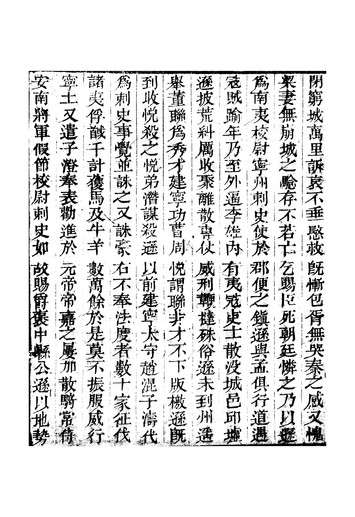 閉窮城萬里訴哀不垂愍救既慚包胥無哭秦之感又愧
梁妻無崩城之驗存不若亡乞賜臣死朝廷憐之乃以遜
為南夷校尉寧州刺史使於郡便之鎮遜與孟俱行道遇
寇賊踰年乃至外逼李雄內有夷寇吏士散没城邑丘墟
遜披荒糾厲收聚離散專仗威刑鞭撻殊俗遜未到州遥
舉董聯為秀才建寧功曹周悅謂聯非才不下版檄遜既
到收悅殺之悅弟潛謀殺遜以前建寧太守趙混子濤代
為刺史事覺並誅之又誅豪右不奉法度者數十家征伐
諸夷俘馘千計獲馬及牛羊數萬餘於是莫不振服威行
寧土又遣子澄奉表勸進於元帝帝嘉之累加散騎常侍
安南將軍假節校尉刺史如故賜爵襃中縣公遜以地勢